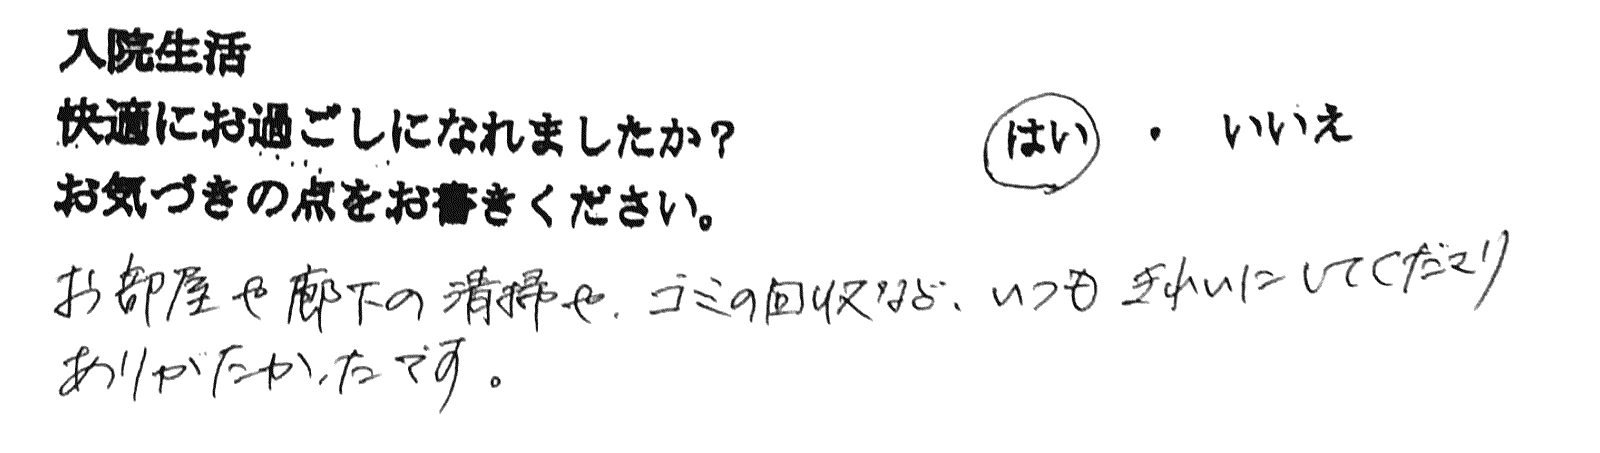 入院生活
快適にお過ごしになれましたか? はい ・ いいえ
お気づきの点をお書きください。
お部屋や廊下の清掃や、ゴミの回収など、いつもきれいにしてくださり
ありがたかったです。